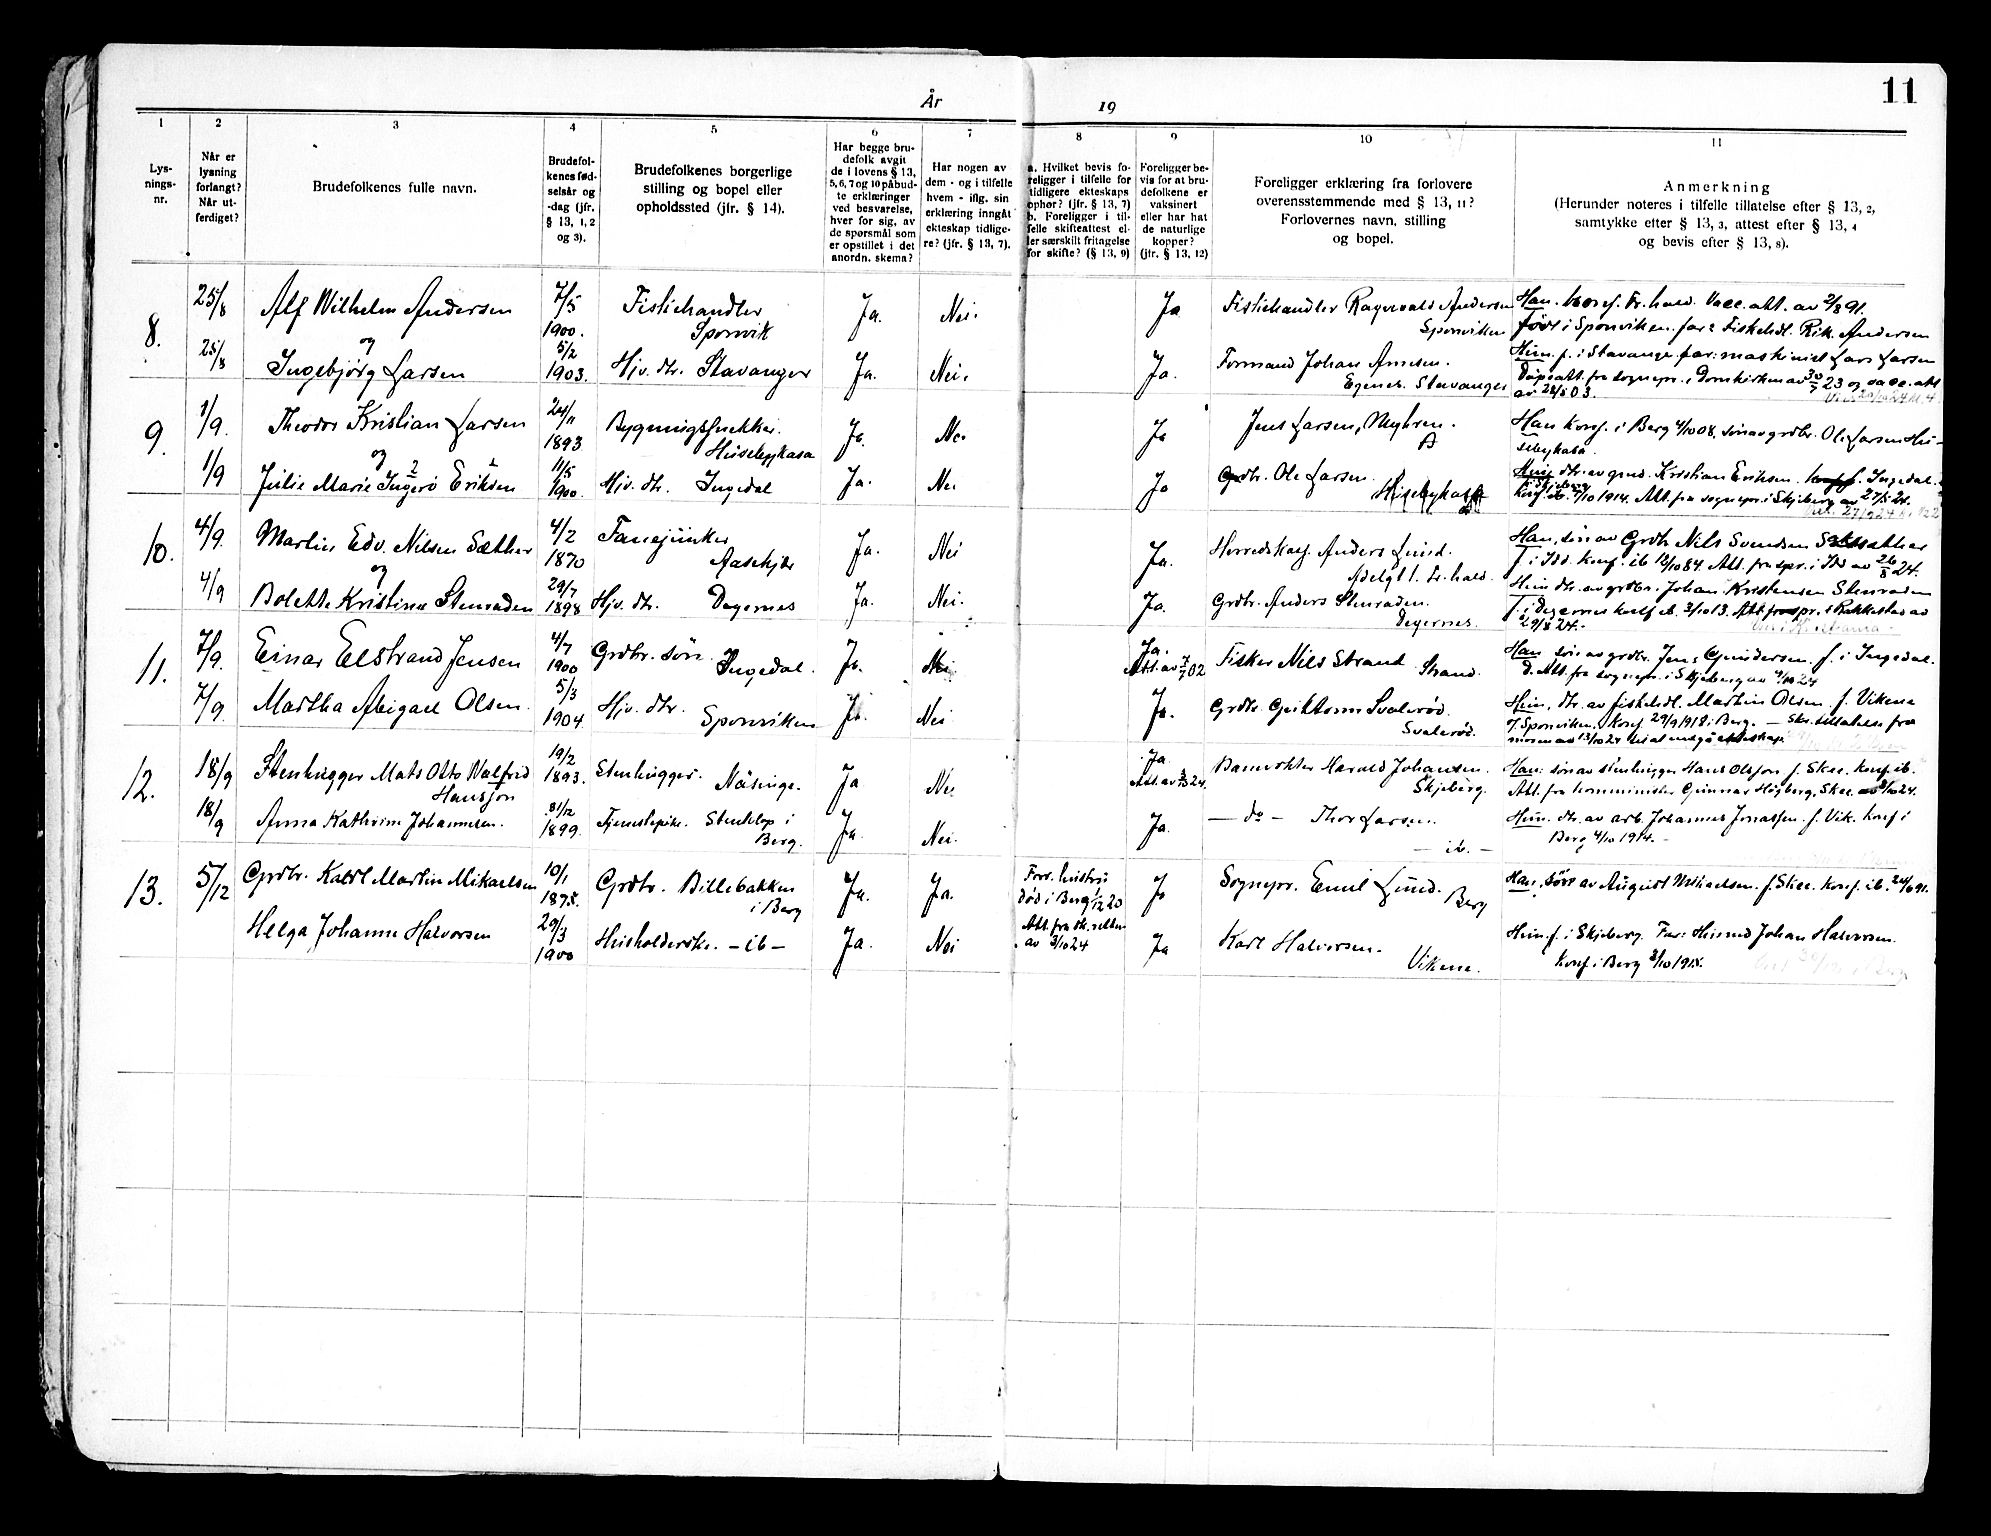 11
År 19
1 2 3 4 5 6 7 8 9 10 11
Lys-
nings-
nr.
Når er
lysning
forlangt?
Når ut-
ferdiget?
Brudefolkenes fulle navn.
Brudefol-
kenes fød-
selsår og
-dag (jfr.
§ 13, 1, 2
og 3).
Brudefolkenes borgerlige
stilling og bopel eller
opholdssted (jfr. § 14).
Har begge bru-
defolk avgit
de i lovens § 13,
5, 6, 7 og 10 påbud-
te erklæringer
ved besvarelse,
hver for sig, av
de spørsmål som
er opstillet i det
anordn. skema?
Har nogen av
dem - og i tilfelle
hvem - iflg. sin
erklæring inngåt
ekteskap tidlige-
re? (jfr. § 13, 7).
a. Hvilket bevis fo-
religger i tilfelle for
tidligere ekteskaps
ophør? (jfr. § 13, 7)
b. Foreligger i til-
felle skifteattest el-
ler særskilt fritagelse
for skifte? (§ 13, 9)
Foreligger be-
vis for at bru-
defolkene er
vaksinert
eller har hat
de naturlige
kopper?
(jfr. § 13, 12)
Foreligger erklæring fra forlovere
overensstemmende med § 13, 11?
Forlovernes navn, stilling
og bopel.
Anmerkning
(Herunder noteres i tilfelle tillatelse efter § 13, 2,
samtykke efter § 13, 3, attest efter § 13, 4
og bevis efter § 13, 8).
8.
25/8
Alf Wilhelm Andersen
7/5
1900.
Fiskehandler
Sponvik
Ja.
Nei.
Ja
Fiskehandler Ragnvald Andersen
Sponviken
Han. konf. Fr.hald. Vacc. att. av 2/8 91.
født i Sponviken. far: Fiskehdl. Rik. Andersen
og
25/8
Ingebjørg Larsen
5/2
1903.
Hjv. dtr. Stavanger
Ja.
Nei.
Ja.
Formand Johan Arnesen.
Egenes. Stavanger
Hun. f. i Stavanger far: maskinist Lars Larsen
Dåpsatt. fra sognepr. i Domkirken av 30/7 23 og vacc. att
av 28/5 03.
9.
1/9.
Theodor Kristian Larsen
24/11
1893
Bygningssnekker.
Husebykasa
Ja.
Nei
Ja
Jens Larsen, Myhren.
Han konf. i Berg 4/10 08. søn av grdbr. Ole Larsen Hu-
sebykasa.
og
1/9
Julie Marie Ingerø Eriksen
11/5
1900.
Hjv. dtr. Ingedal
Ja.
Nei
Ja
Grdbr. Ole Larsen.
Husebykasa
Hun dtr. av grd. Kristian Eriksen. f. Ingedal.
i Skjeberg
Konf. ib. 4/10 1914. Att. fra sognepr. i Skjeberg av 27/8 24.
10.
4/9.
Martin Edv. Nilsen Sæther
4/2
1870
Fanejunker
Aasekjær
Ja.
Nei
Ja.
Herredskasj. Anders Lund.
Adelgt 1. Fr.hald.
Han, søn av Grdbr Nils Svendsen Sæther
f. i Idd. Konf. ib 12/10 84. Att. fra spr. i Idd av 26/8 24.
og
4/9
Bolette Kristine Stenraden
29/7
1898
Hjv. dtr. Degernes
Ja.
Nei.
Ja.
Grdbr. Anders Stenraden.
Degernes.
Hun dtr. av grdbr. Johan Kristensen Stenraden
f. i Degernes konf. ib. 3/10 13. Att. fra spr. i Rakkestad av
29/8 24.-
11.
7/9.
Einar Elstrand Jensen
4/7
1900
Grdbr. søn
Ingedal.
Ja.
Nei
Ja.
Att. av 7/7 02
Fisker Nils Strand Strand.
Han søn av grdbr. Jens Gundersen f. i Ingedal.
D. Att. fra sognepr. i Skjeberg av 9/10 24
7/9
Martha Abigael Olsen.
5/3
1904.
Hjv. dtr. Sponviken
Ja.
Nei
Ja.
Svalerød.
Hun, dtr. av fiskehdl. Martin Olsen. f. Vikene
Sponviken. Konf. 29/9 1918 i Berg. - Skr. tillatelse fra
moren av 13/10 24 til at inngå ekteskap
12.
18/9
Stenhugger Mats Otto Walfrid
Hansson
19/2
1893.
Stenhugger. Näsinge.
Ja
Nei
Ja
Banevokter Harald Johansen.
Skjeberg.
Han: søn av stenhugger Hans Olsson f. Skee. Konf. ib.
Att. fra komminister Gunnar Högberg, Skee
18/9
Anna Kathrine Johannesen.
31/12
1899.
Tjenestepike. Stenløp i
Berg.
Ja.
Nei.
Ja.
- do - Thor Larsen.
- ib. -
Hun. dtr. av arb. Johannes Jonassen. f. Vik. konf. i
Berg 4/10 1914. -
13.
5/12
Grdbr. Karl Martin Mikaelsen
10/1
1875.
Grdbr. Billebakken
i Berg
Ja.
Ja.
Forr. hustru
død i Berg 1/12 20
Ja
Sognepr. Emil Lund.
Berg
Han, søn av August Mikaelsen. f. Skee. konf. ib.
Helga Johanne Halvorsen
29/3
1900
Husholderske. - ib -
Ja.
Nei
Att. fra sk.retten
av 3/10 24
Ja
Karl Halvorsen.
Vikene.
Hun. f. i Skjeberg. Far: Husmd Johan Halvorsen.
Konf. i Berg 3/10 1915.